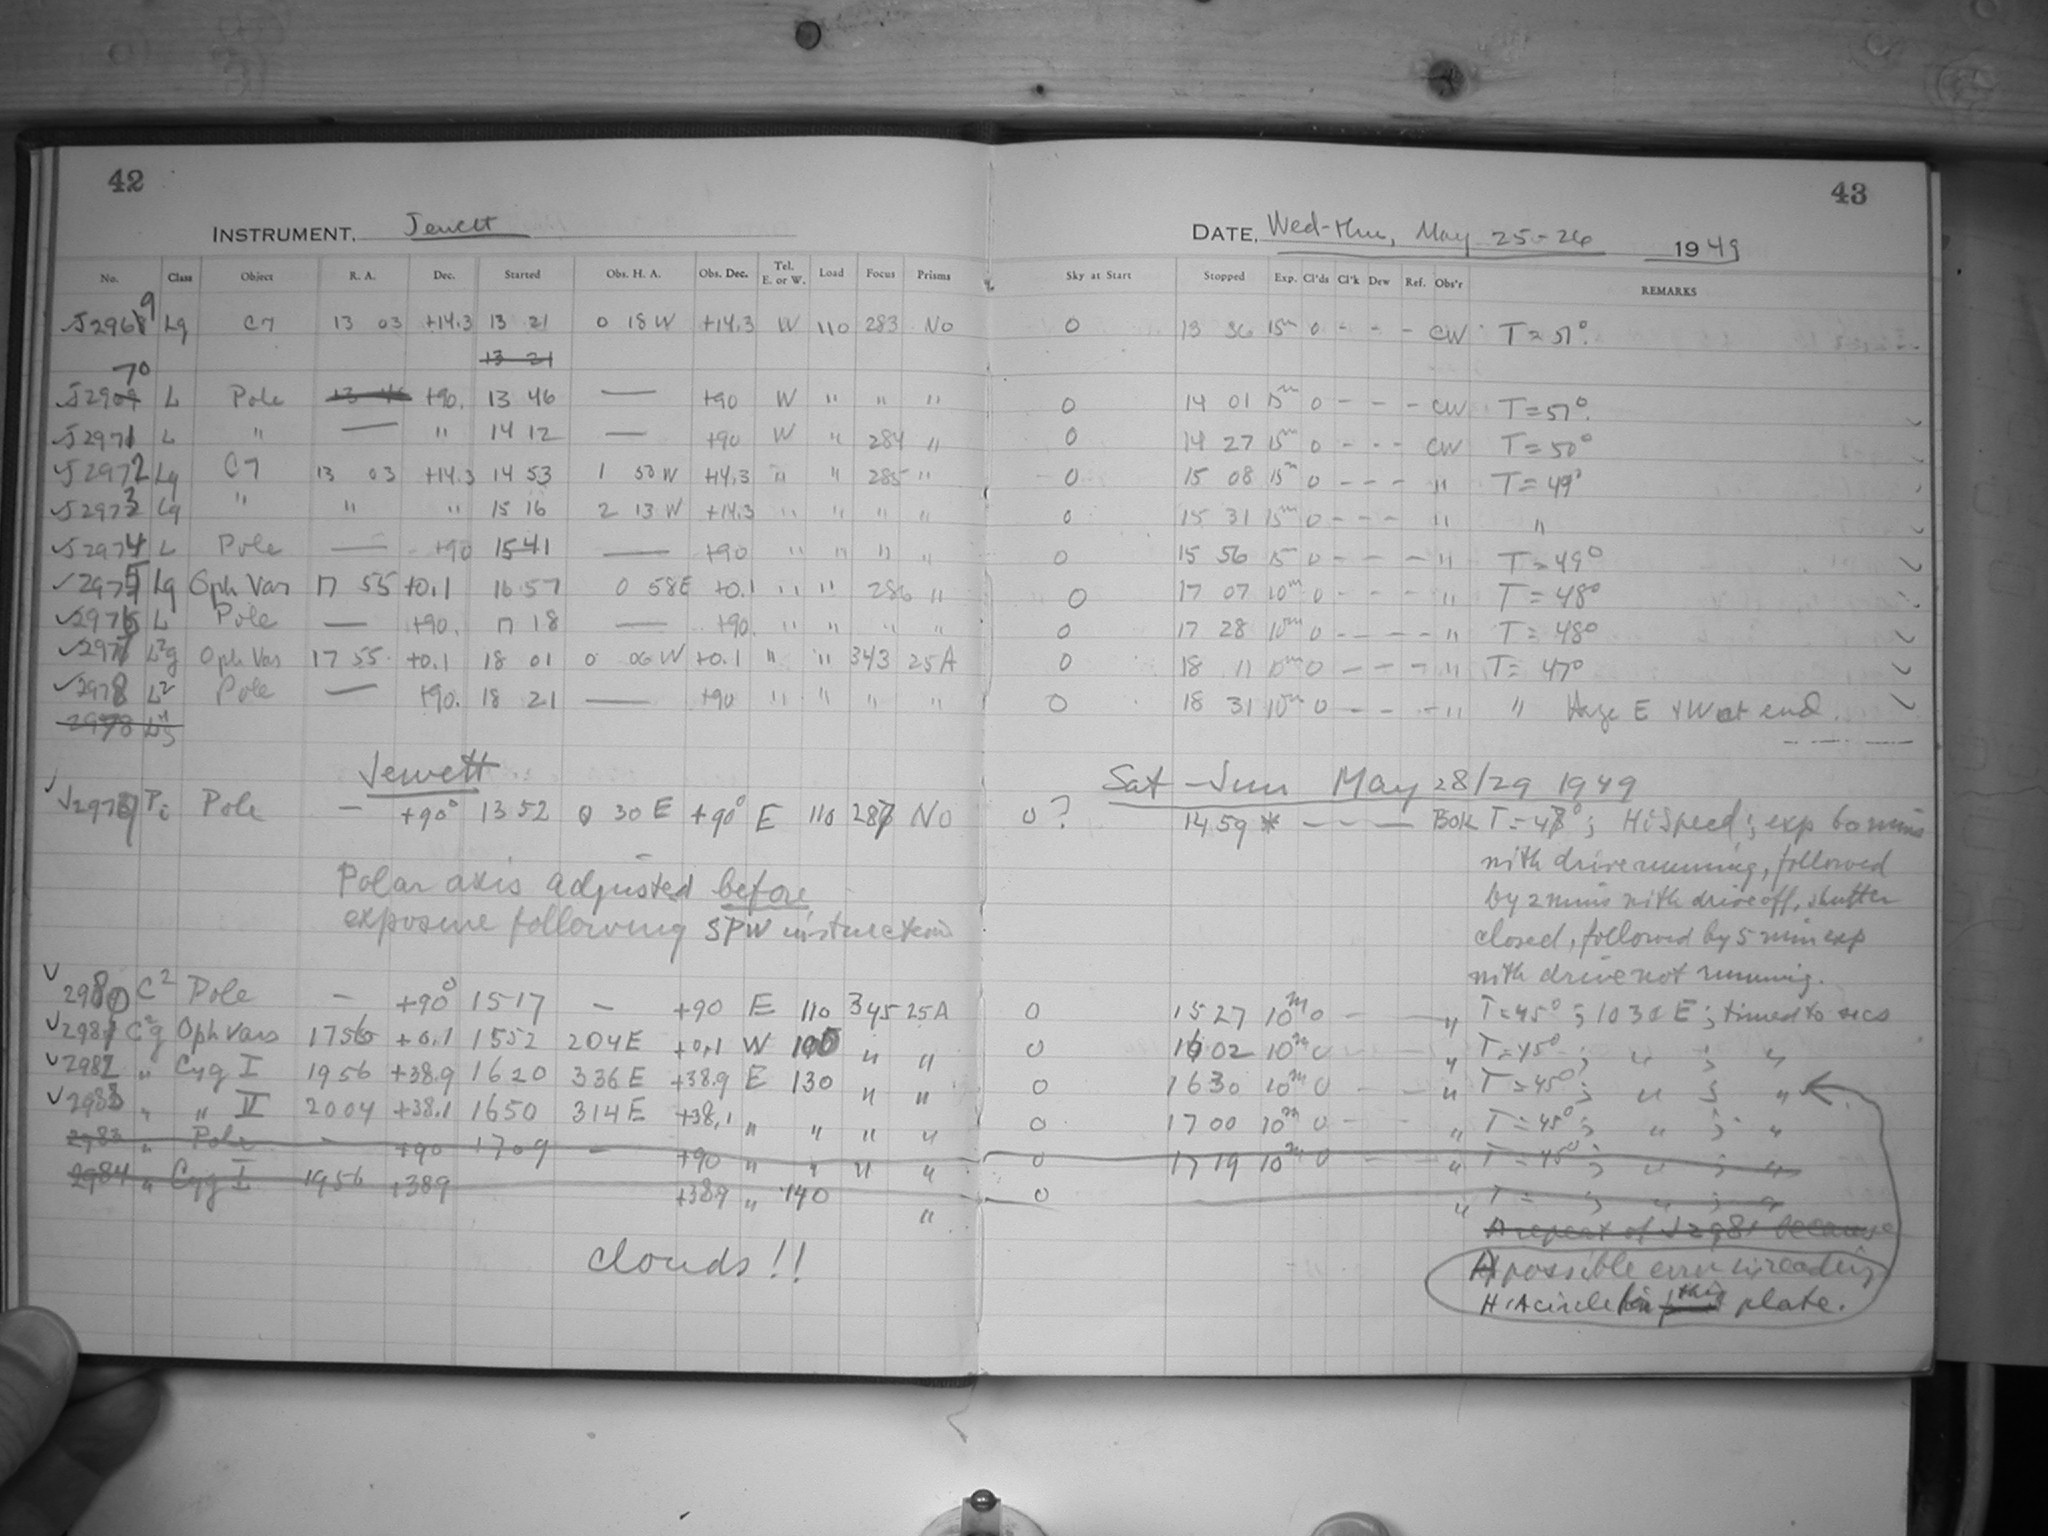 42
43
INSTRUMENT, Jewett
DATE, Wed-Thu, May 25-26 1949
No. Class Object R. A. Dec. Started Obs. H. A. Obs. Dec. Tel. E. or W. Load Focus Prisms Sky at Start Stopped Exp. Cl'ds Cl'k Dew Ref. Obs'r REMARKS
J2969 Lg C7 13 03 +14.3 13 21 0 18 W +14.3 W 110 283 No 0 13 36 15m 0 - - - CW T = 51°.
13 21
J2970 L Pole 13 46 +90. 13 46 — +90 W " " " 0 14 01 15m 0 - - - CW T = 51°.
J2971 L " — " 14 12 — +90 W " 284 " 0 14 27 15m 0 - - - CW T = 50°
J2972 Lg C7 13 03 +14.3 14 53 1 50 W +14.3 " " 285 " 0 15 08 15m 0 - - - " T = 49°
J2973 Lg " " " 15 16 2 13 W +14.3 " " " " 0 15 31 15m 0 - - - " "
J2974 L Pole — +90 15 41 — +90 " " " " 0 15 56 15 0 - - - " T = 49°
2975 Lg Oph Var 17 55 +0.1 16 57 0 58 E +0.1 " " 286 " 0 17 07 10m 0 - - - " T = 48°
2976 L Pole — +90. 17 18 — +90. " " " " 0 17 28 10m 0 - - - " T = 48°
2977 L²g Oph Var 17 55 +0.1 18 01 0 06 W +0.1 " " 343 25A 0 18 11 10m 0 - - - " T = 47°
2978 L² Pole — +90. 18 21 — +90 " " " " 0 18 31 10m 0 - - - " " Haze E & W at end.
2978
Jewett
Sat - Sun May 28/29 1949
J2979 Pi Pole - +90° 13 52 0 30 E +90° E 110 287 No 0? 14 59 * - - - BOK T = 48°; Hi Speed; exp 60 mins
with drive running, followed
by 2 mins with drive off, shutter
closed, followed by 5 min exp
with drive not running.
Polar axis adjusted before
exposure following SPW instruction
2980 C² Pole - +90° 15 17 - +90 E 110 345 25A 0 15 27 10m 0 - - " T = 45°; 1030 E; timed to secs
2981 C²g Oph Vars 17 56 +0.1 15 52 2 04 E +0.1 W 100 " " 0 16 02 10m 0 " T = 45°; " ; "
2982 " Cyg I 19 56 +38.9 16 20 3 36 E +38.9 E 130 " " 0 16 30 10m 0 - - " T = 45°; " ; "
2983 " " IV 20 04 +38.1 16 50 3 14 E +38.1 " " " " 0 17 00 10m 0 - - " T = 45°; " ; "
2983 " Pole - +90 17 09 - +90 " " " " 0 17 19 10m 0 - - " T = 45°; " ; "
2984 " Cyg I 19 56 +38.9 +38.9 " 140 " 0 " T = ; " ; "
A repeat of J2981 because
clouds!!
A possible error in reading
H.A circle for this plate.